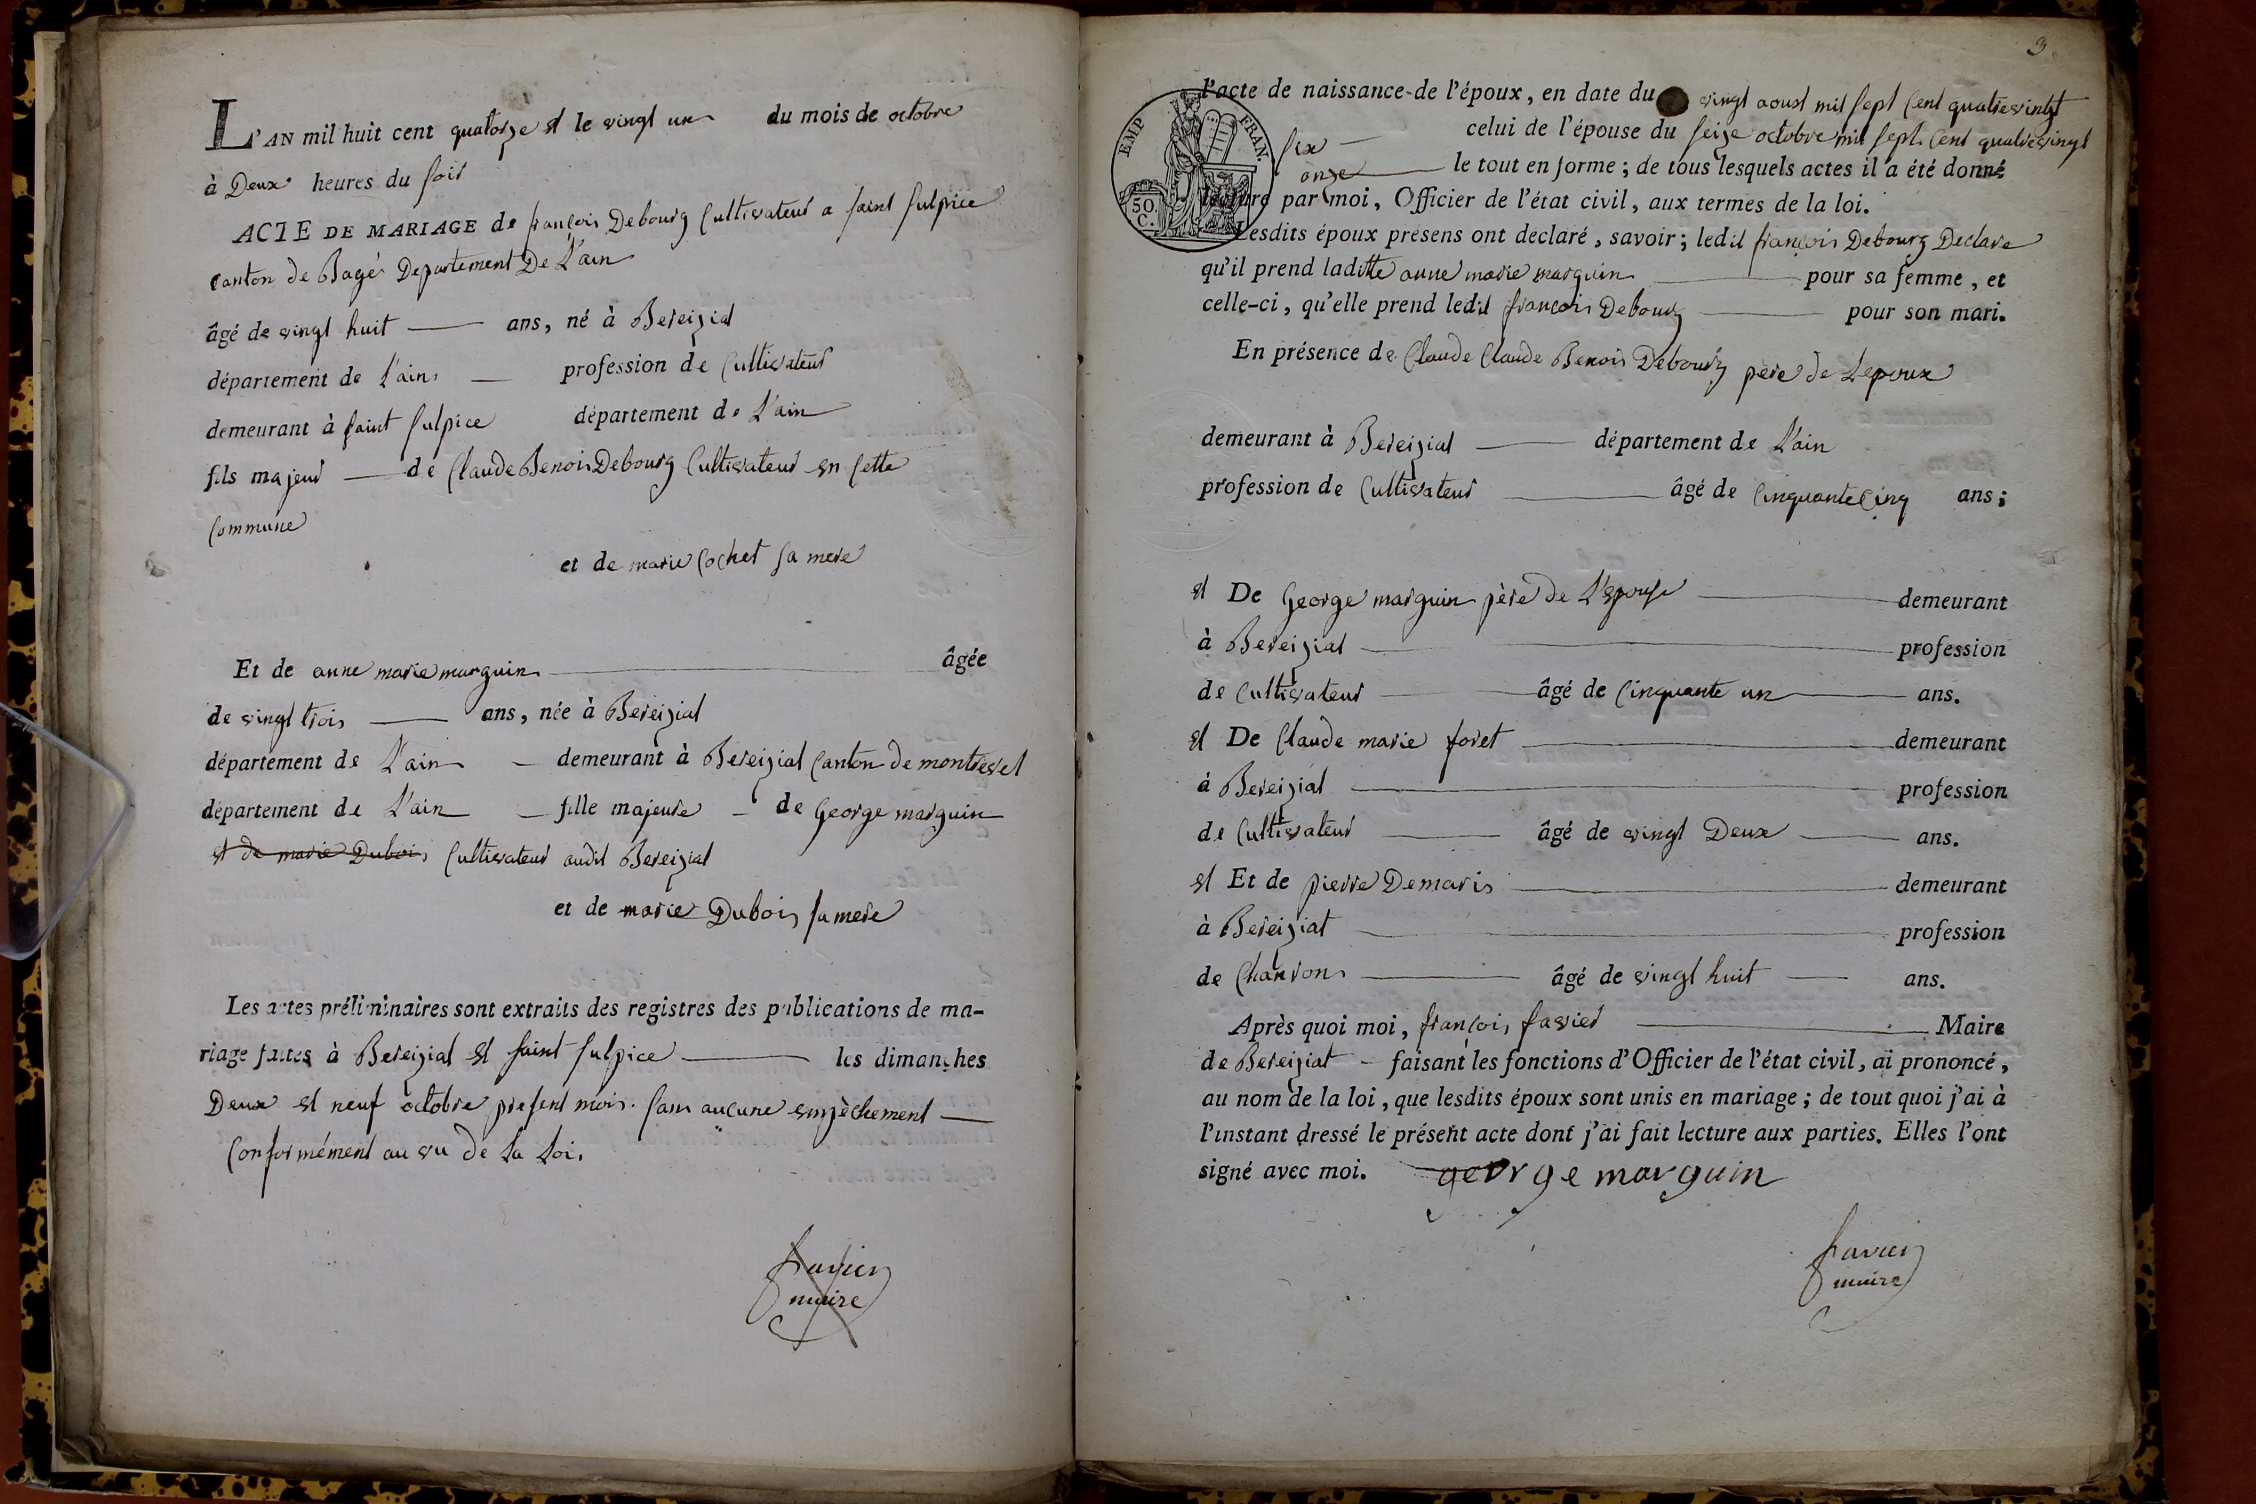 L'AN mil huit cent quatorze et le vingt un du mois de octobre
à Deux heures du soir
ACTE DE MARIAGE de françois Debourg Cultivateur a saint sulpice
canton de Bagé Departement De L'ain
âgé de vingt huit ans, né à Bereiziat
département de L'ain profession de Cultivateur
demeurant à saint sulpice département de L'ain
fils majeur de Claude Benois Debourg Cultivateur en cette
commune
et de marie cochet sa mere
Et de anne marie marguin âgée
de vingt trois ans, née à Bereiziat
département de L'ain demeurant à Bereiziat Canton de montrevel
département de L'ain fille majeure de George marguin
et de marie Dubois Cultivateur audit Bereiziat
et de marie Dubois sa mere
Les actes préliminaires sont extraits des registres des publications de ma-
riage faites à Bereiziat et saint sulpice les dimanches
Deux et neuf octobre present mois. sans aucune empèchement
conformément au vu de La Loi.
favier
maire
3
l'acte de naissance de l'époux, en date du vingt aoust mil sept cent quatrevingt
six celui de l'épouse du seize octobre mil sept cent quatrevingt
onze le tout en forme; de tous lesquels actes il a été donné
lecture par moi, Officier de l'état civil, aux termes de la loi.
EMP FRAN.
50 C.
Lesdits époux présens ont déclaré, savoir; ledit françois Debourg Declare
qu'il prend laditte anne marie marguin pour sa femme, et
celle-ci, qu'elle prend ledit françois Debourg pour son mari.
En présence de Claude Claude Benois Debourg père de Lepoux
demeurant à Bereiziat département de L'ain
profession de Cultivateur âgé de Cinquante Cinq ans;
et De George marguin père de L'epouse demeurant
à Bereiziat profession
de Cultivateur âgé de Cinquante un ans.
et De Claude marie foret demeurant
à Bereiziat profession
de Cultivateur âgé de vingt Deux ans.
et Et de pierre Demaris demeurant
à Bereiziat profession
de Charron âgé de vingt huit ans.
Après quoi moi, françois favier Maire
de Bereiziat faisant les fonctions d'Officier de l'état civil, ai prononcé,
au nom de la loi, que lesdits époux sont unis en mariage; de tout quoi j'ai à
l'instant dressé le présent acte dont j'ai fait lecture aux parties. Elles l'ont
signé avec moi. george marguin
favier
maire